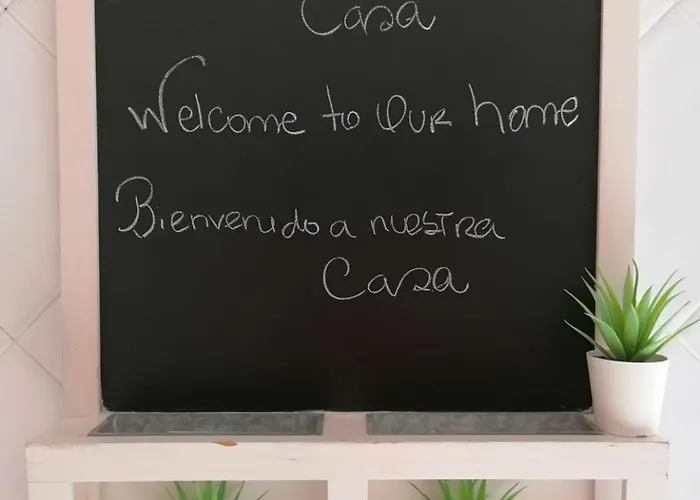 Casa
Welcome to our home
Bienvenido a nuestra
Casa